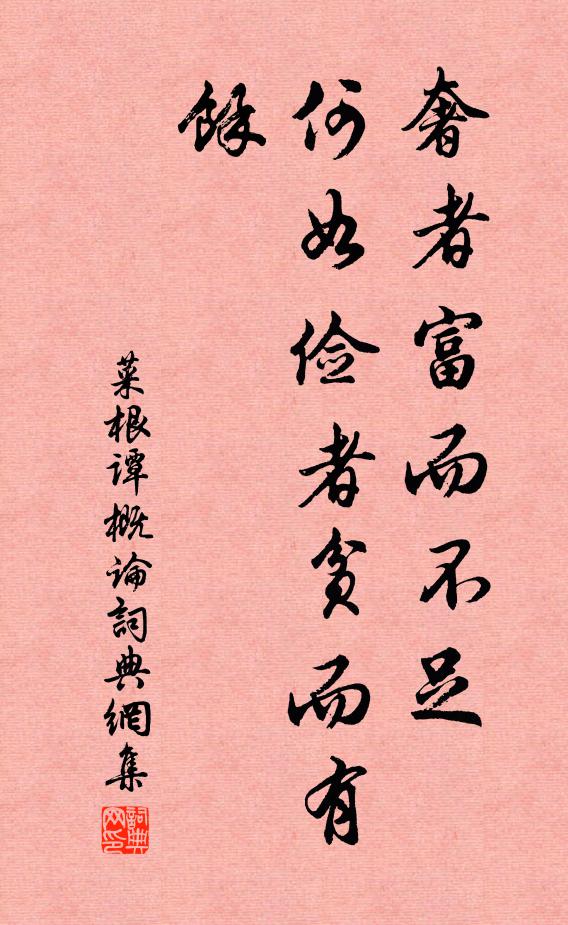 奢者富而不足
何如俭者貧而有
餘
菜根谭概論詞典網集
詞典
网印